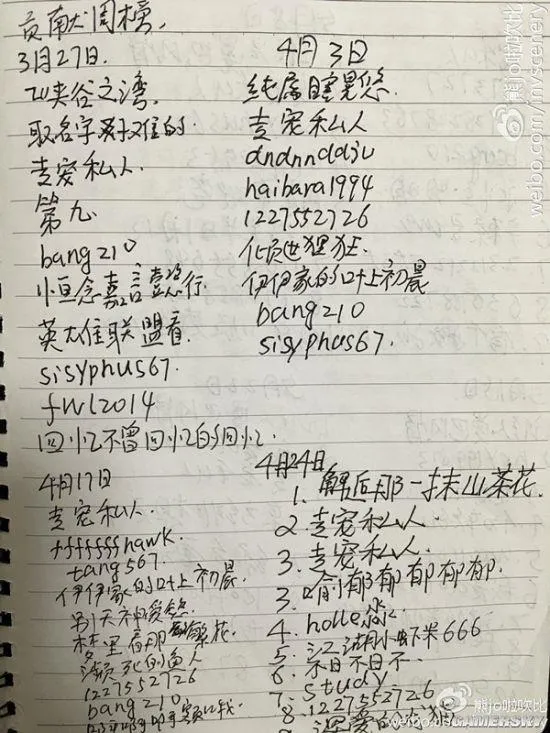 贡献周榜.
3月27日.
W峡谷之湾.
取名字好难的
专宠私人.
第九.
bang210
恒念嘉言
英大住联盟看.
sisyphus67.
fwl2014
回忆不曾回忆的回忆.
4月3日
纯属瞎晃悠.
专宠私人
dndnnddju
haibara1994
1227552726
伊伊家的叶上初晨
bang210
sisyphus67.
4月17日
专宠私人.
fffffffhawk.
tang567.
伊伊家的叶上初晨.
别天神爱悠
梦里看那繁花.
濒死的鱼人
1227552726
bang210
4月24日
1. 邂逅那一抹山茶花.
2 专宠私人.
3. 专宠私人.
3. 喻郁郁郁郁郁.
4. holle淼
5. 江湖小虾米666
6. 不日不
7. study
8. 1227552726
9 深爱的
熊jo啦吹比
weibo.com/invscenery
熊jo啦吹比
GAMERSKY